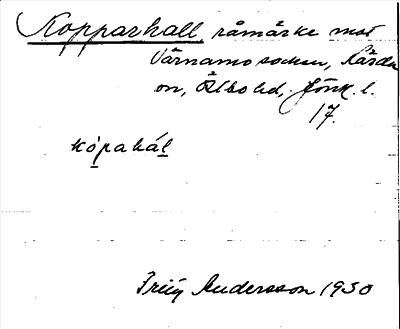 Kopparhall råmärke mot
Värnamo socken, Kärda
sn, Östbo hd, Jönk. l.
17.
kópahál
Friij Andersson 1930